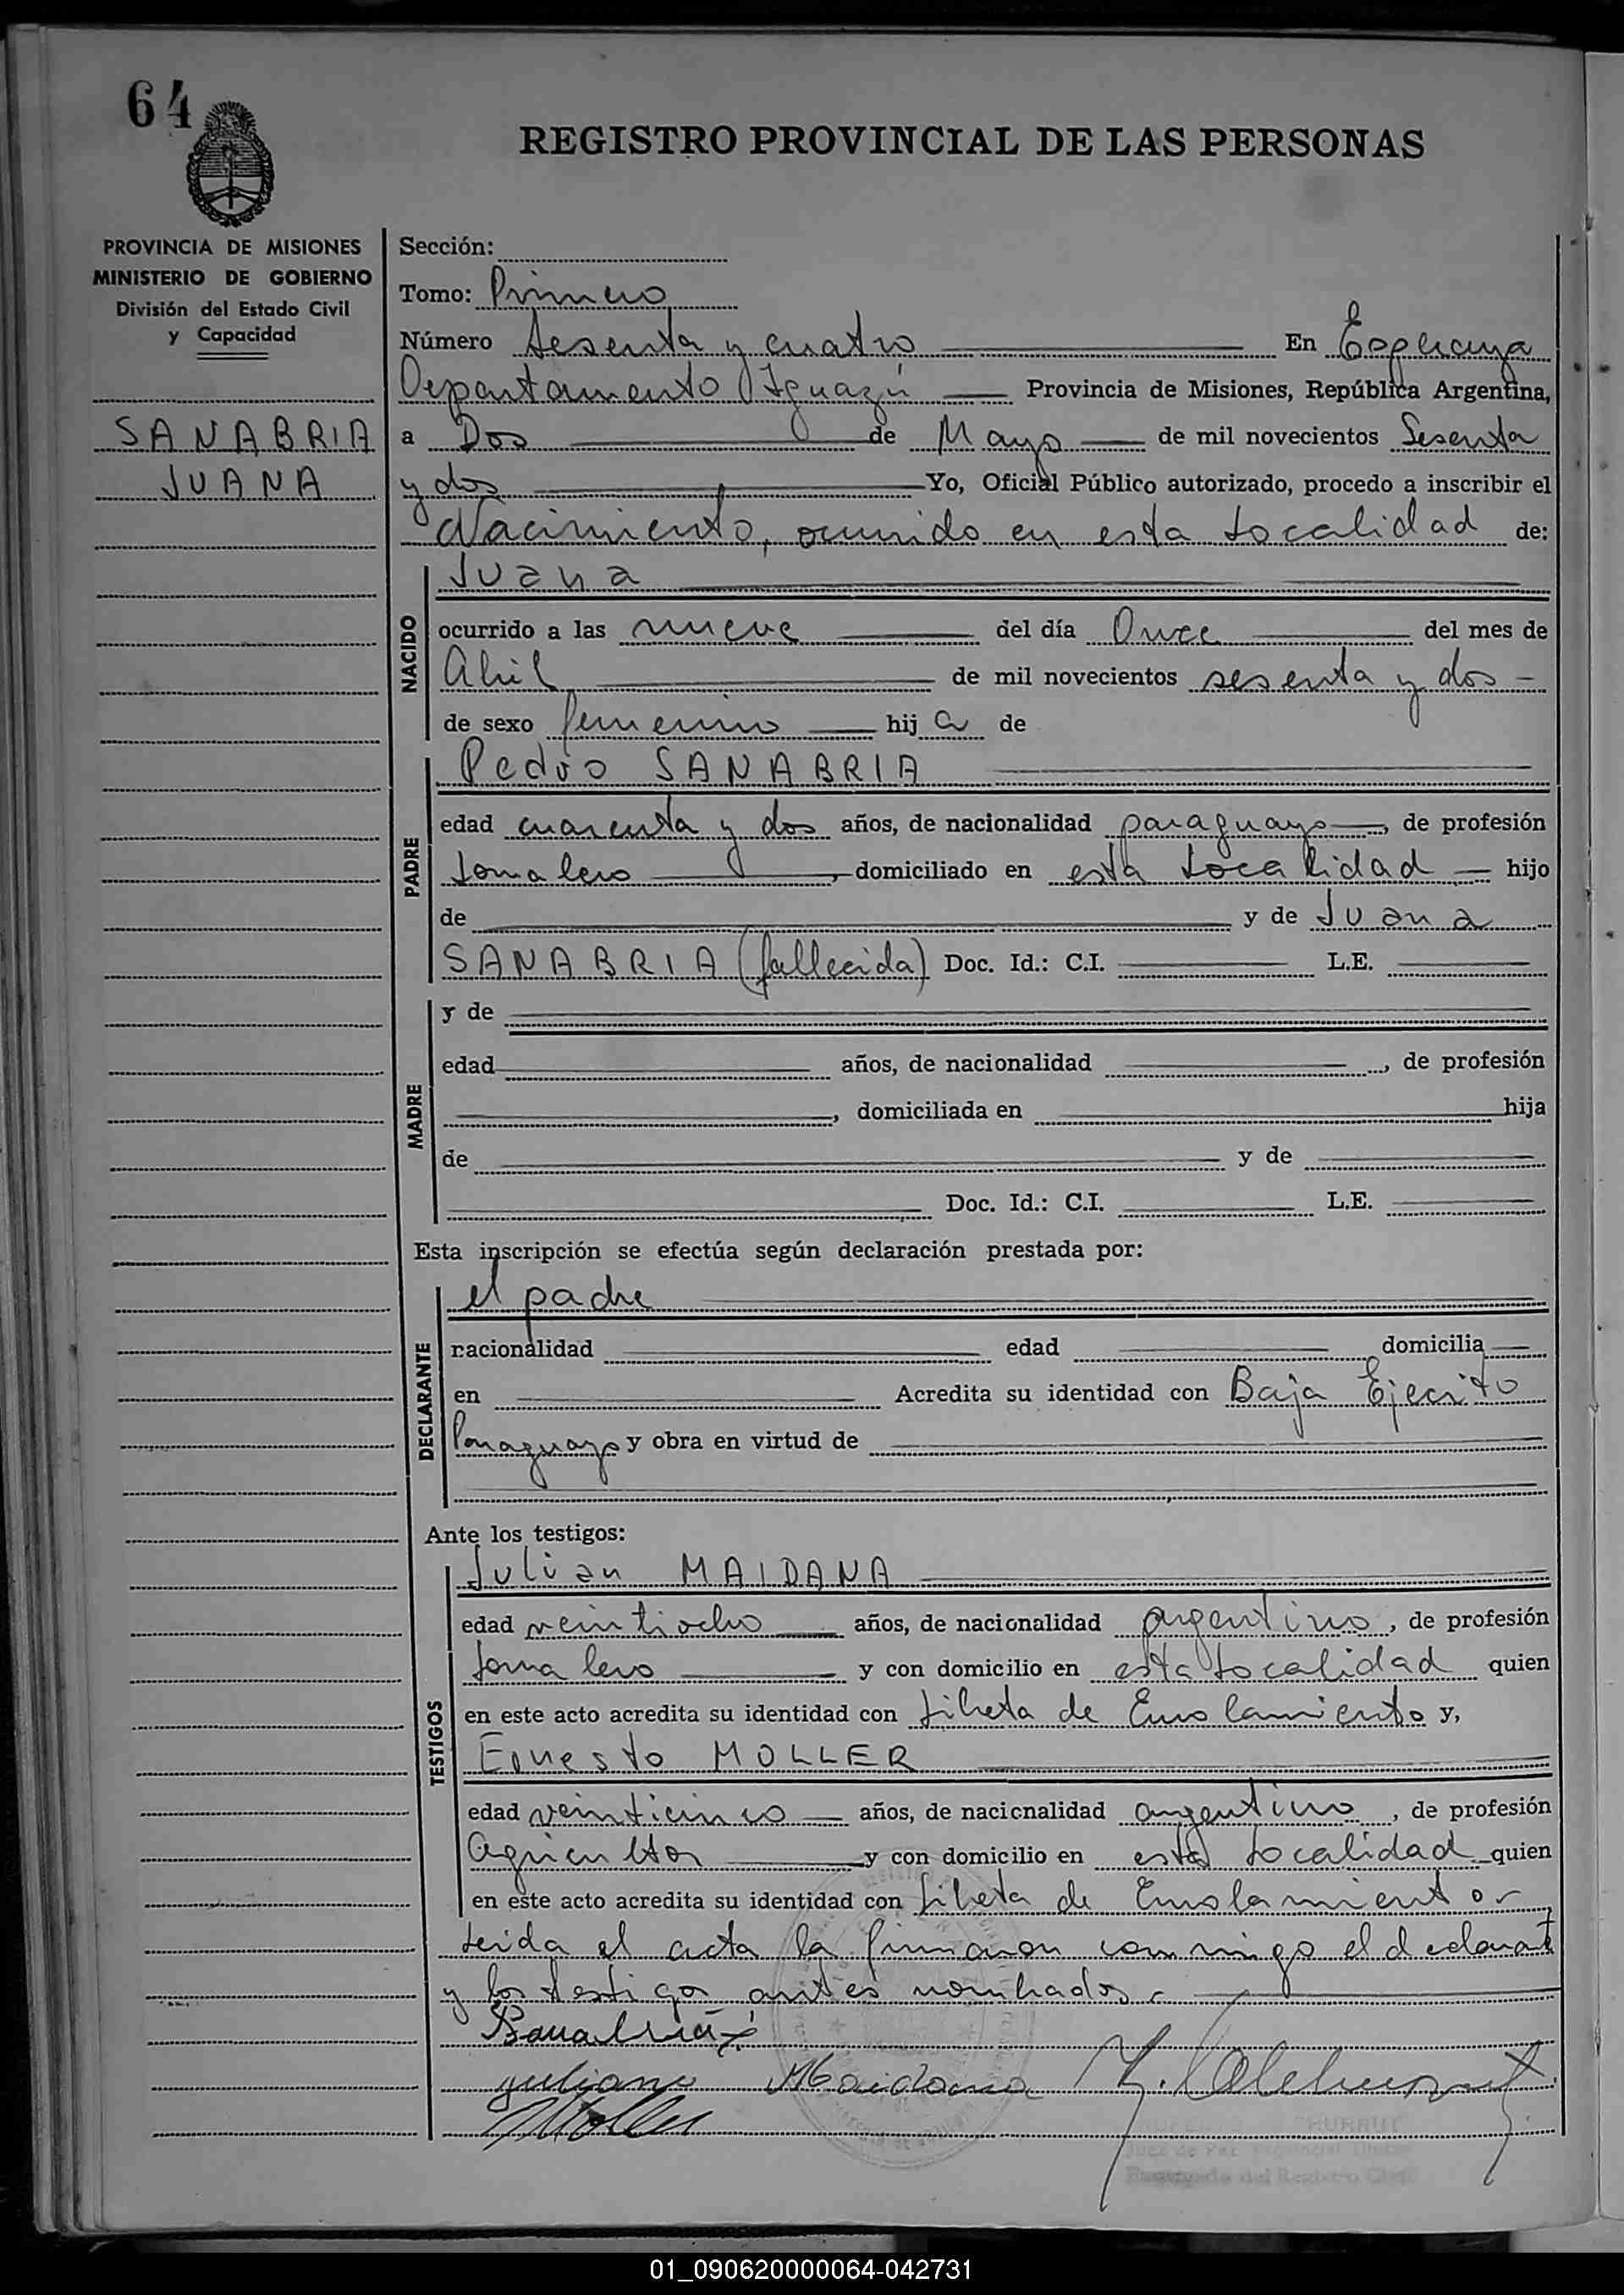 64
REGISTRO PROVINCIAL DE LAS PERSONAS
PROVINCIA DE MISIONES
MINISTERIO DE GOBIERNO
División del Estado Civil
y Capacidad
SANABRIA
JUANA
Sección:
Tomo: Primero
Número Sesenta y cuatro En Esperanza
Departamento Iguazú Provincia de Misiones, República Argentina,
a Dos de Mayo de mil novecientos Sesenta
y dos Yo, Oficial Público autorizado, procedo a inscribir el
Nacimiento, ocurrido en esta Localidad de:
NACIDO
Juana
ocurrido a las nueve del día Once del mes de
Abril de mil novecientos sesenta y dos
de sexo femenino hij a de
PADRE
Pedro SANABRIA
edad cuarenta y dos años, de nacionalidad paraguayo, de profesión
Jornalero, domiciliado en esta Localidad hijo
de y de Juana
SANABRIA (fallecida) Doc. Id.: C.I. L.E.
MADRE
y de
edad años, de nacionalidad , de profesión
, domiciliada en hija
de y de
Doc. Id.: C.I. L.E.
Esta inscripción se efectúa según declaración prestada por:
DECLARANTE
el padre
nacionalidad edad domicilia
en Acredita su identidad con Baja Ejercito
Paraguayo y obra en virtud de
Ante los testigos:
TESTIGOS
Julian MAIDANA
edad veintiocho años, de nacionalidad argentino, de profesión
Jornalero y con domicilio en esta Localidad quien
en este acto acredita su identidad con Libreta de Enrolamiento y,
Ernesto MOLLER
edad veinticinco años, de nacionalidad argentino, de profesión
Agricultor y con domicilio en esta Localidad quien
en este acto acredita su identidad con Libreta de Enrolamiento
Leida el acta la firmaron conmigo el declarante
y los testigos antes nombrados.
Sanabria
Juliano Maidana
Moller
Juez de Paz
Encargado del Registro Civil
01_090620000064-042731